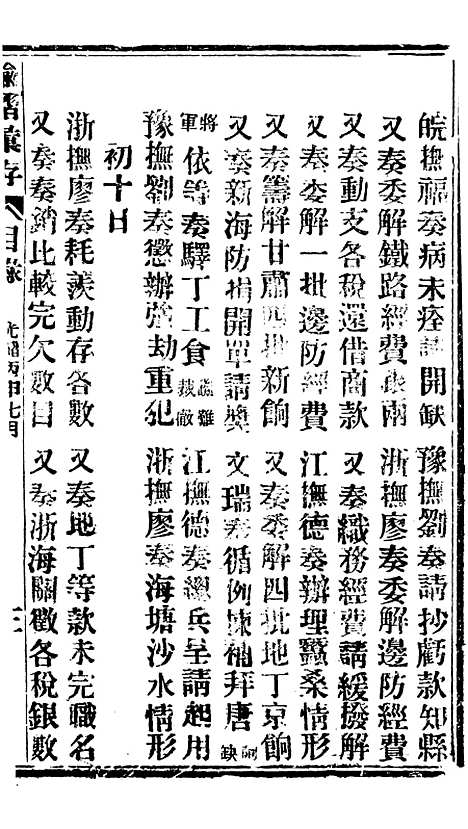 皖撫福奏病未痊請開缺　豫撫劉奏請抄虧款知縣
又奏委解鐵路經費銀兩　浙撫廖奏委解邊防經費
又奏動支各稅還借商款　又奏織務經費請緩撥解
又奏委解一批邊防經費　江撫德奏辦理蠶桑情形
又奏籌解甘肅四批新餉　又奏委解四批地丁京餉
又奏新海防捐開單請獎　文瑞奏循例揀補拜唐阿缺
將軍依等奏驛丁工食礙難裁撤　江撫德奏總兵呈請起用
豫撫劉奏懲辦強劫重犯　浙撫廖奏海塘沙水情形
初十日
浙撫廖奏耗羨動存各數　又奏地丁等款未完職名
又奏奏銷比較完欠數目　又奏浙海關徵各稅銀數
諭摺彙存　目錄　光緒丙申七月